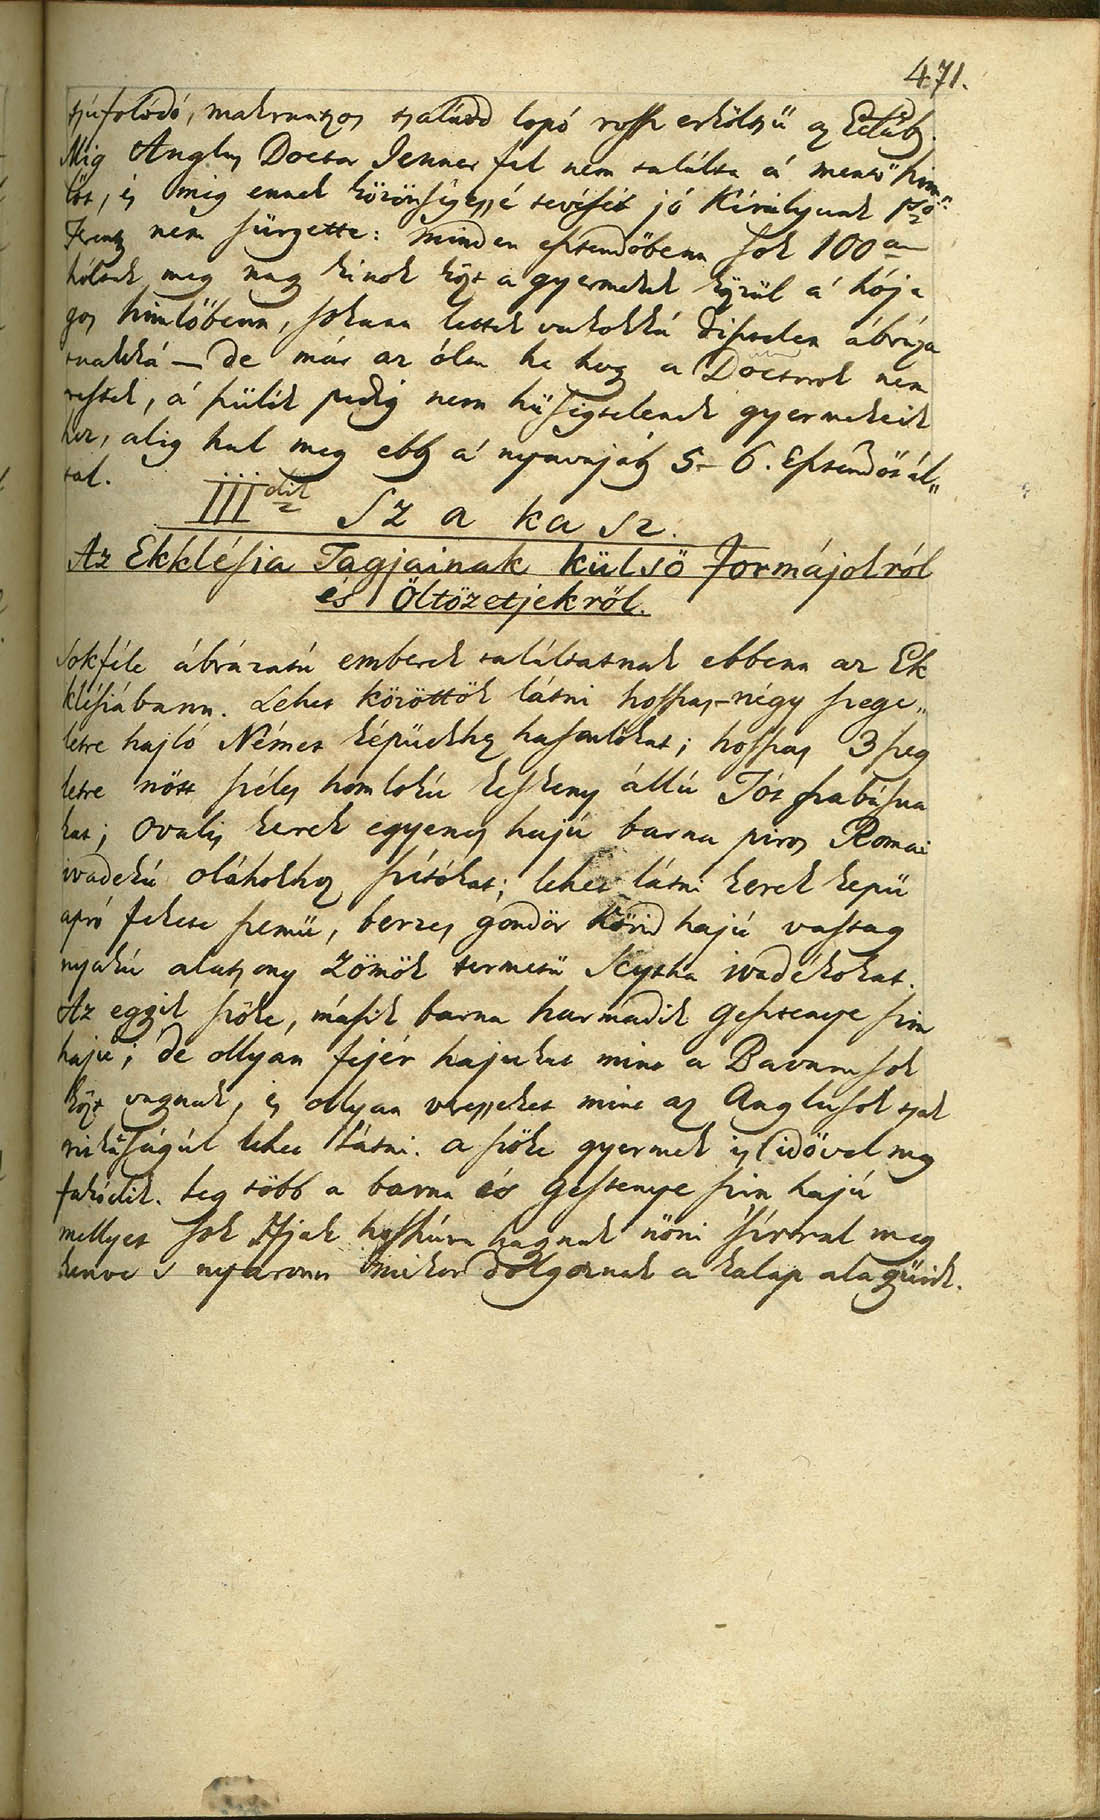 471.
tsúfolódó, makrantzos tsalárd lopó rossz erköltsű az Ecláb.
Míg Anglus Doctor Jenner fel nem találta á mentő him„
lőt, és míg ennek közönségessé tevését jó Királyunk 1ső
Ferentz nem sürgette: minden esztendőbenn sok 100an
holtak meg nagy kínok közt a gyermekek közzül á hója
gos himlőbenn, sokann lettek vakokká Disztelen ábráza
tuakká — de már az ólta ha hogy a Doctorok nem
restek, á szülék pedig nem hűségtelenek gyermekeik
hez, alig hal meg ebb á nyavajáb 5–6. Esztendős ál„
tal.
IIIdik Szakasz.
Az Ekklésia Tagjainak külső formájokról
és Öltözetjekről.
Sokféle ábrázatú emberek találtatnak ebbenn az Ek
klésiábann. Lehet közöttök látni hosszas–négy szege„
letre hajló Német képüekhez hasonlókat; hosszas 3 szeg
letre nőtt széles homlokú keskeny állú Tót szabásua
kat; Ovalis kerek egyenes hajú barna piros Romai
ivadékú oláhokhoz szítókat; lehet látni kerek kepü
apró fekete szemü, berzes göndör körid hajú vastag
nyakú alatsony zömök termetü Scytha ivadékokat.
Az eggik szőke, másik barna harmadik gesztenye szin
hajú; de ollyan fejér hajukat mint a Bavarusok
közt vagnak, és ollyan veresseket mint az Anglusok tsak
ritkaságúl lehet látni. a szőke gyermek is idővel meg
fakódik. Leg több a barna és gesztenye szin hajú
mellyet sok Ifjak hosszúra hagnak nőni 'sírral meg
kenve s nyáronn mikor dolgoznak a kalap alá gyűrik.